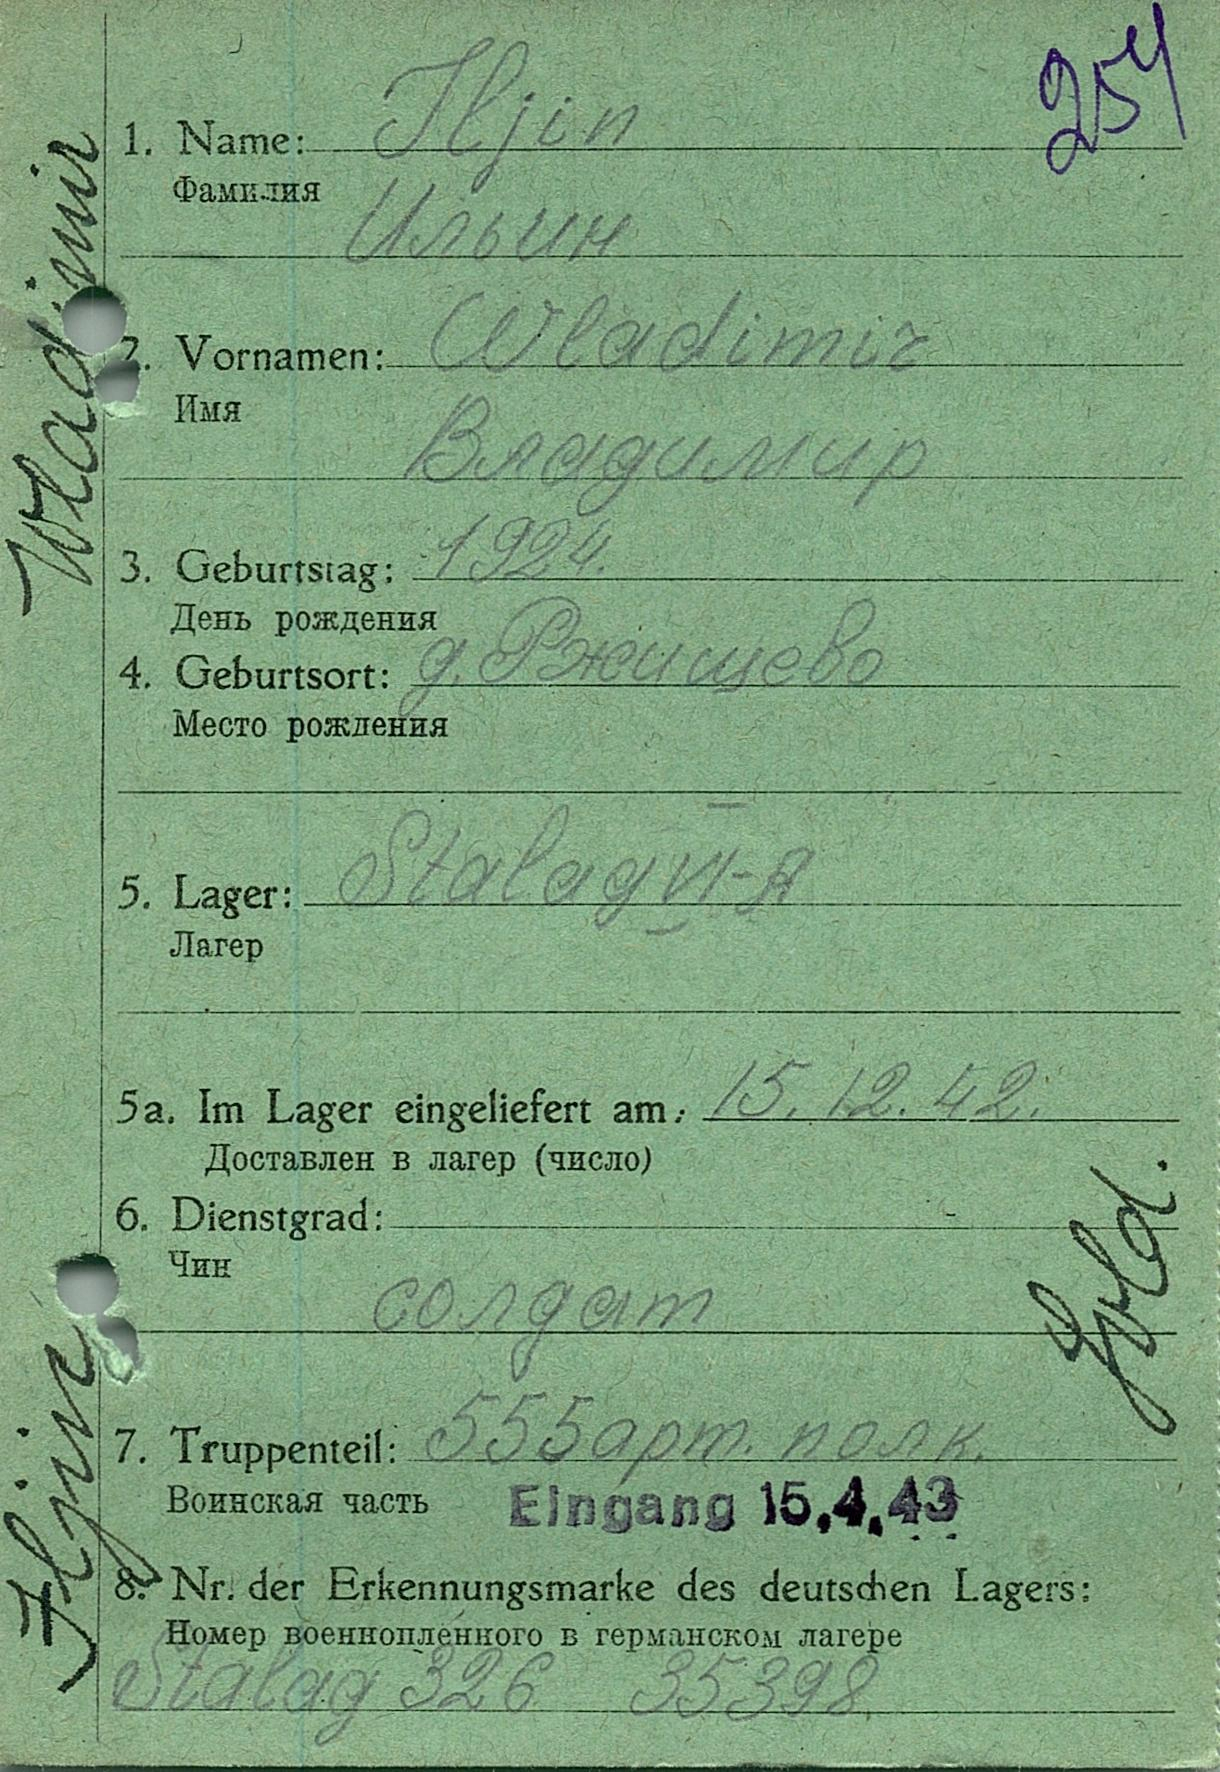 254
1. Name: Iljin
Фамилия
Ильин
2. Vornamen: Wladimir
Имя
Владимир
3. Geburtstag: 1924.
День рождения
4. Geburtsort: д. Ржищево
Место рождения
5. Lager: Stalag VI-A
Лагер
5a. Im Lager eingeliefert am: 15.12.42.
Доставлен в лагер (число)
6. Dienstgrad:
Чин
солдат
Sold.
7. Truppenteil: 555 арт. полк.
Воинская часть
Eingang 15.4.43
8. Nr. der Erkennungsmarke des deutschen Lagers:
Номер военнопленного в германском лагере
Stalag 326 35398
Iljin Wladimir